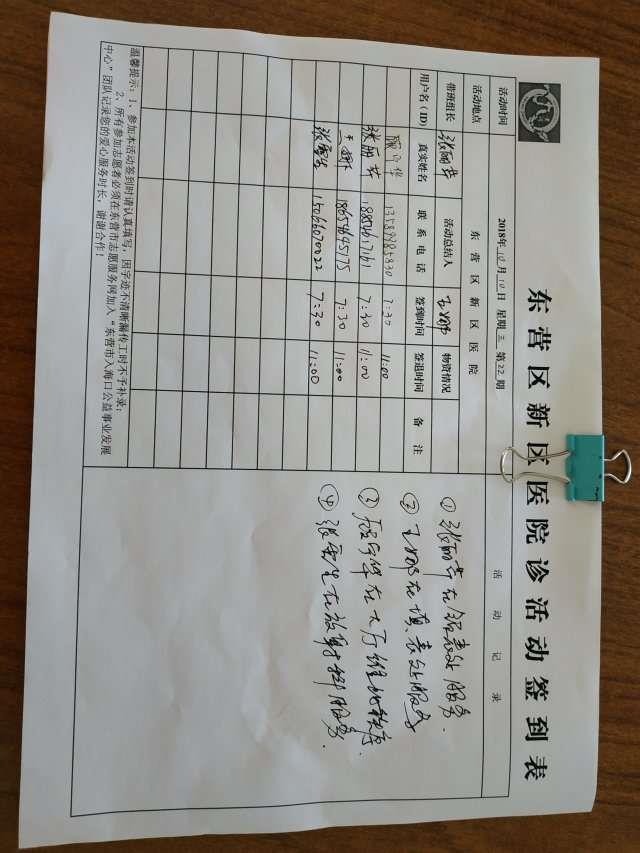 东营区新区医院诊活动签到表
活动时间 2018年10月10日 星期三 第22期 活动记录
活动地点 东营区新区医院
带班组长 张丽芹 活动总结人 物资情况
用户名(ID) 真实姓名 联系电话 签到时间 签退时间 备注
7:30 11:00
张丽芹 7:30 11:00
18654645175 7:30 11:00
15066070022 7:30 11:00
①张丽芹在领表处服务.
②在填表处服务
③在大厅维护秩序.
④在放射科服务.
温馨提示:1、参加本活动签到时请认真填写,因字迹不清晰漏传工时不予补录;
2、所有参加志愿者必须在东营市志愿服务网加入“东营市入海口公益事业发展
中心”团队记录您的爱心服务时长,谢谢合作!